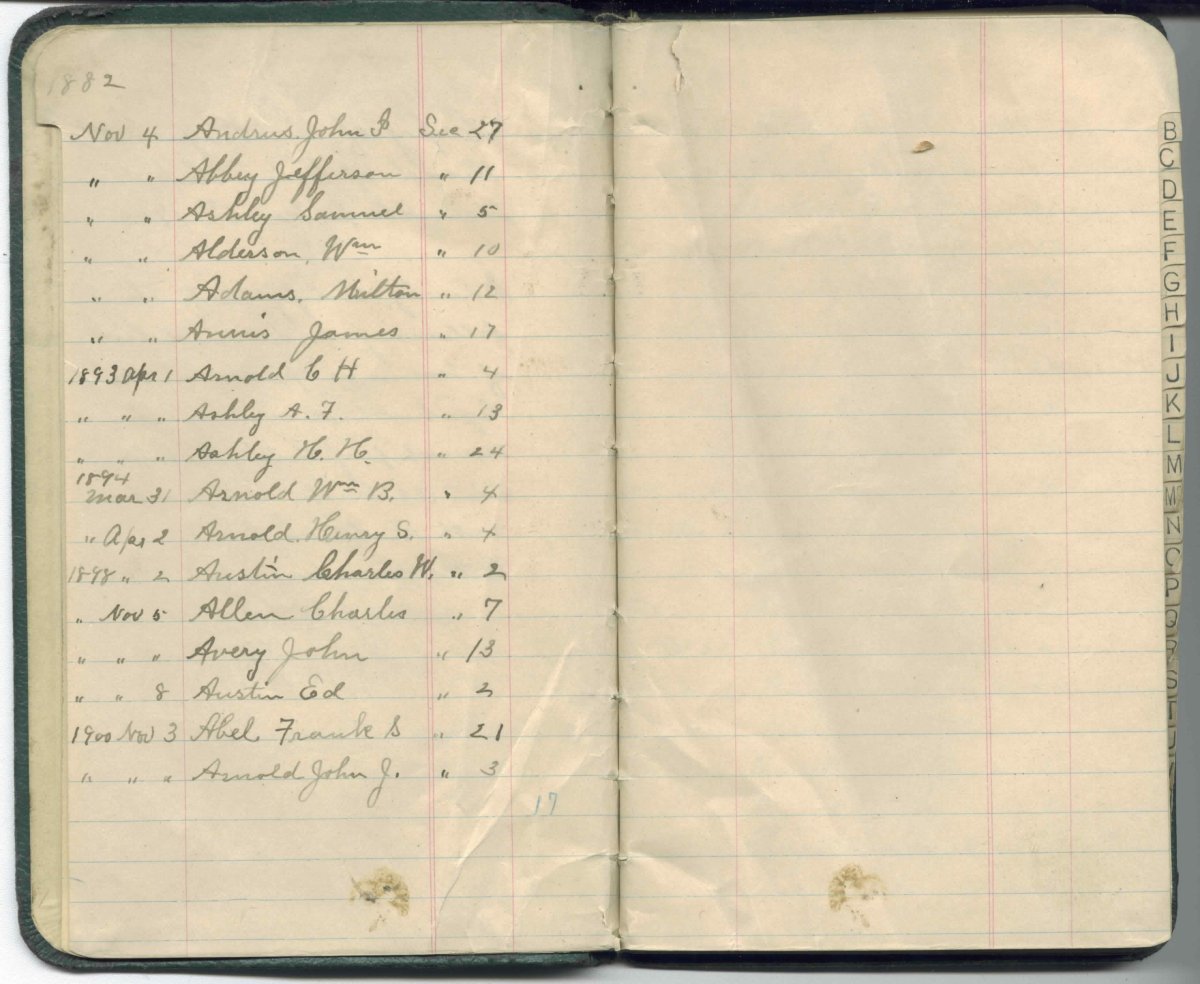 1882
Nov 4 Andrus John P Sec 27
" " Abbey Jefferson " 11
" " Ashley Samuel " 5
" " Alderson, Wm " 10
" " Adams, Milton " 12
" " Annis James " 17
1893 Apr 1 Arnold C H " 4
" " " Ashley A. F. " 13
" " " Ashley H. H. " 24
1894
Mar 31 Arnold Wm B. " 4
" Apr 2 Arnold, Henry S. " 4
1898 " 2 Austin Charles W. " 2
" Nov 5 Allen Charles " 7
" " " Avery John " 13
" " 8 Austin Ed " 2
1900 Nov 3 Abel Frank S " 21
" " " Arnold John J. " 3
17
B
C
D
E
F
G
H
I
J
K
L
M
Mc
N
O
P
Q
R
S
T
U